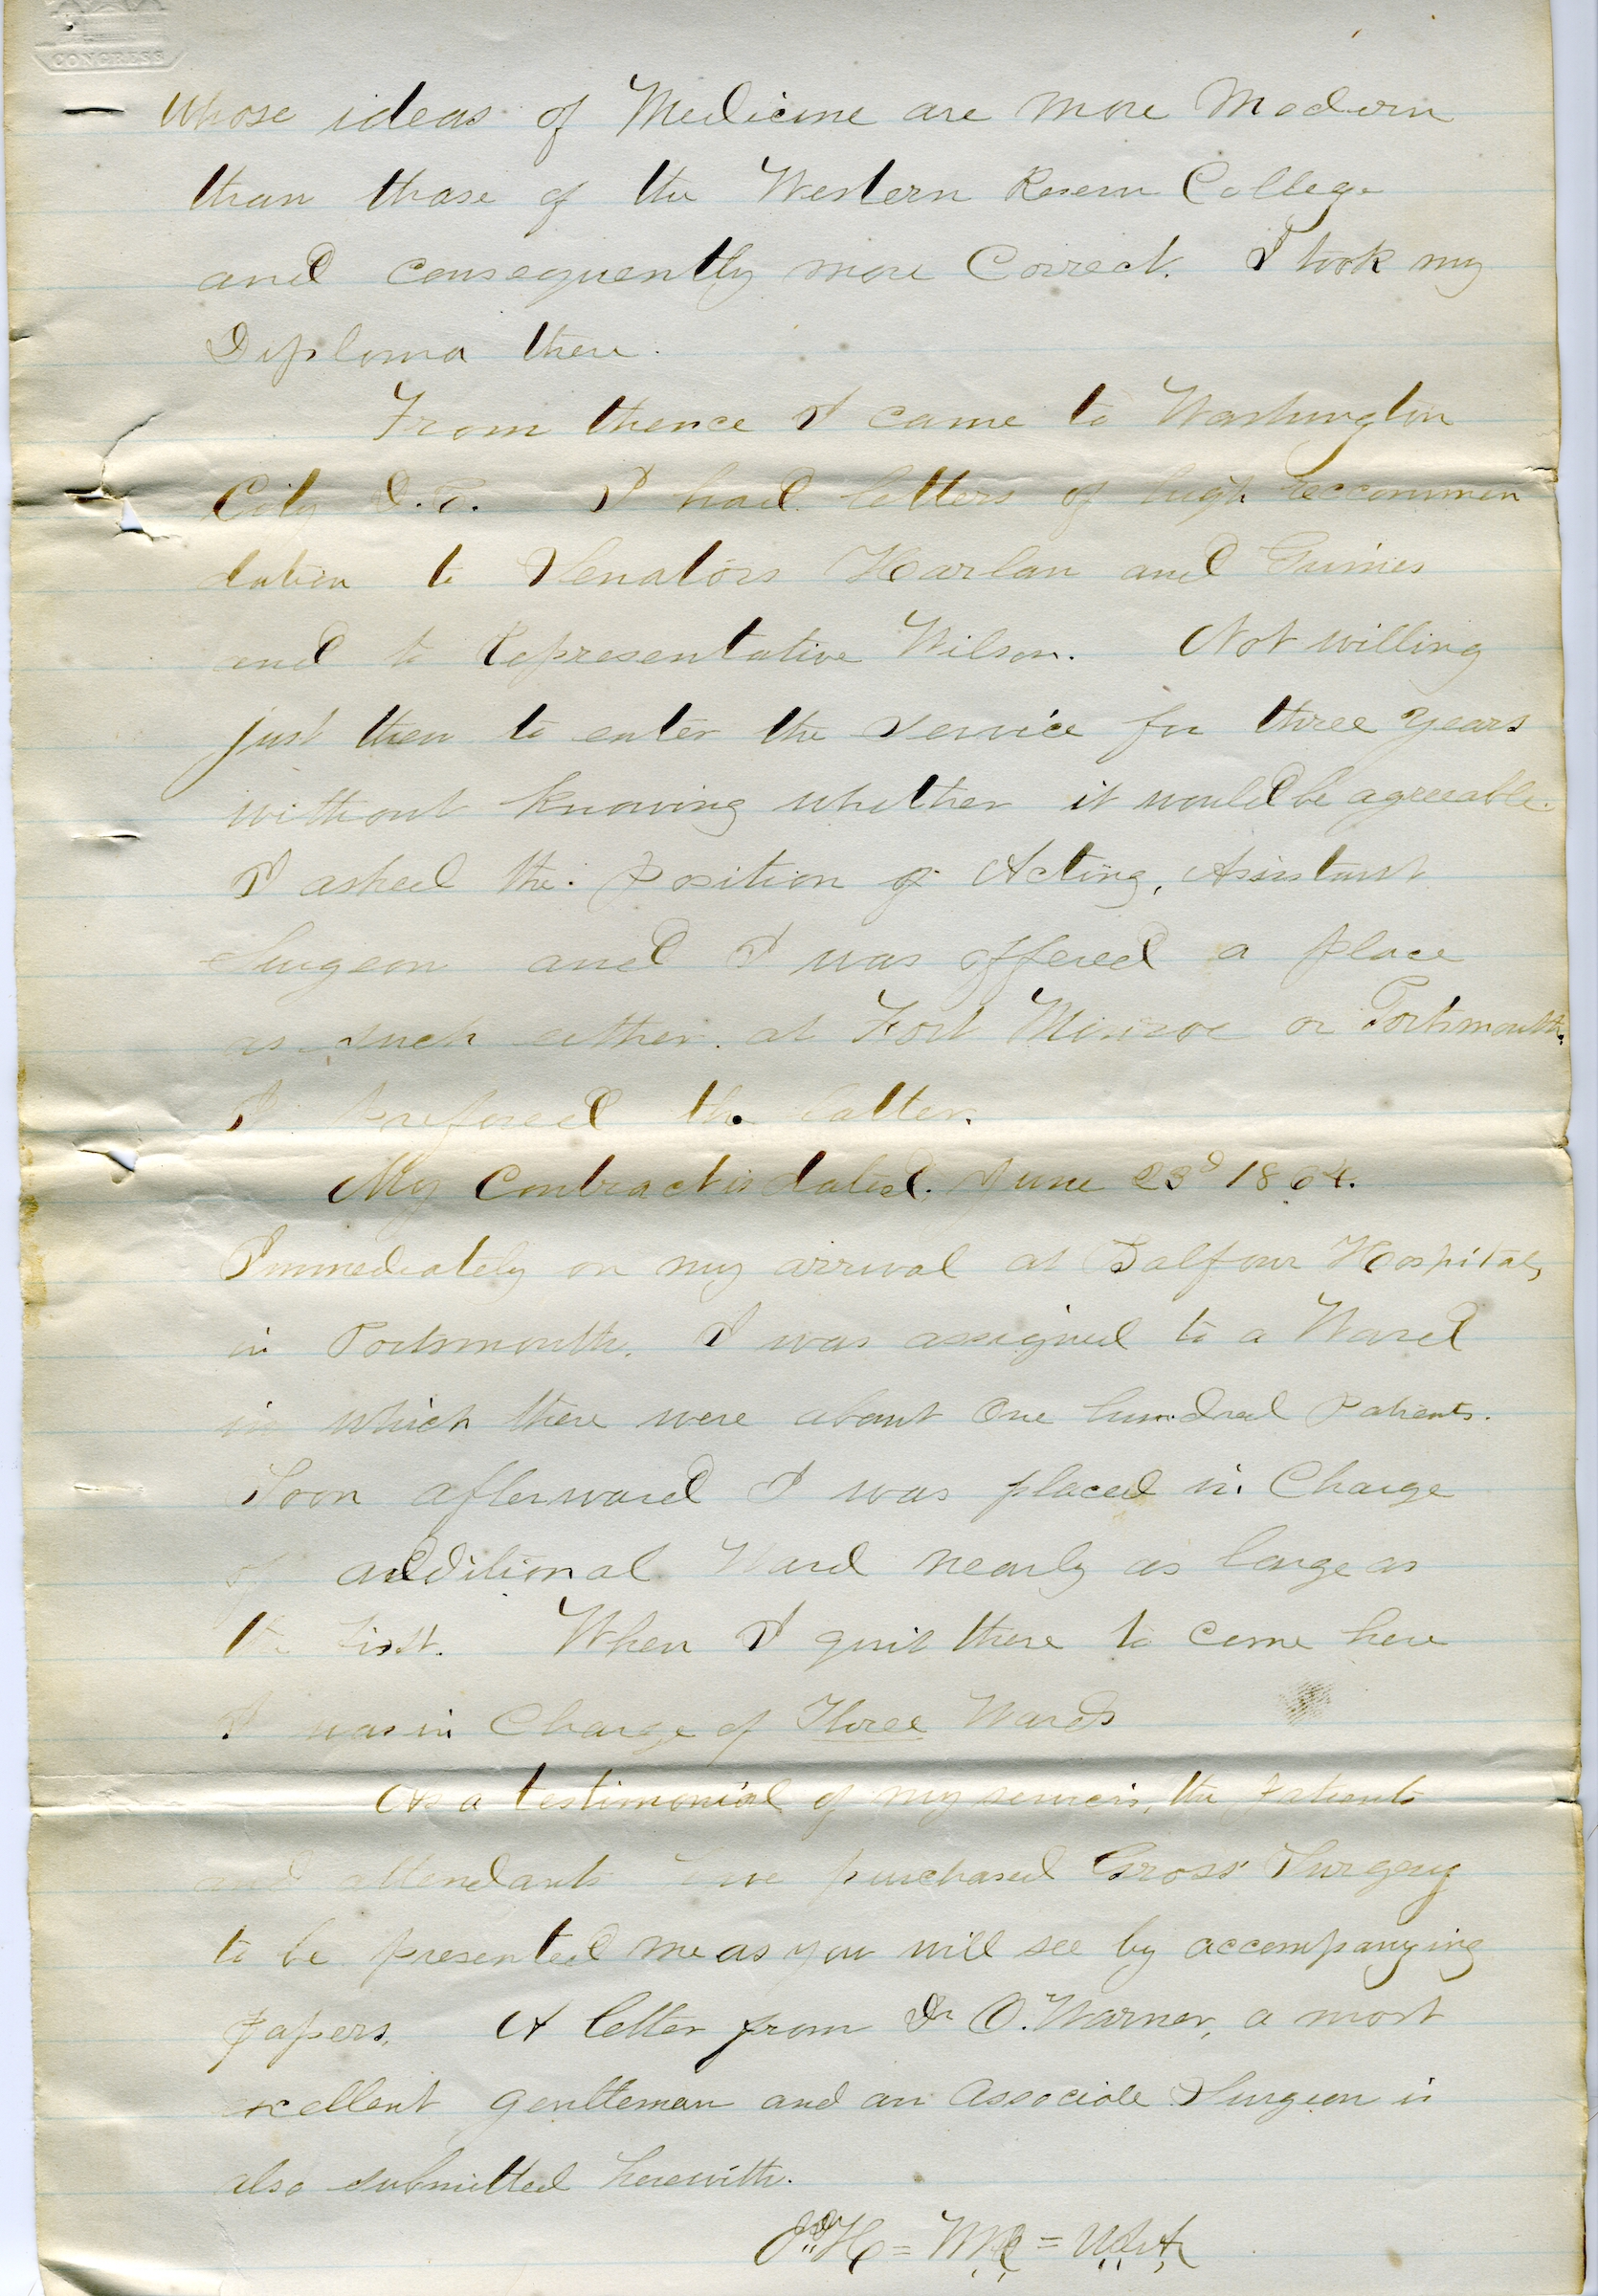 CONGRESS
whose ideas of Medicine are more Modern
than those of the Western Reserve College
and consequently more Correct. I took my
Diploma there.
From thence I came to Washington
City D.C. I had letters of high reccommen
dation to Senators Harlan and Grimes
and to Representative Wilson. Not willing
just then to enter the service for three years
without knowing whether it would be agreeable.
I asked the position of Acting, Assistant
Surgeon and I was offered a place
as such either at Fort Monroe or Portsmouth.
I prefered the latter.
My Contract is dated June 23d 1864.
Immediately on my arrival at Balfour Hospital,
in Portsmouth, I was assigned to a Ward
in which there were about One hundred Patients.
Soon afterward I was placed in Charge
of additional Ward nearly as large as
the first. When I quit there to come here
I was in Charge of Three Wards
As a testimonial of my services, the patients
and attendants have purchased Gross' Surgery
to be presented me as you will see by accompanying
papers. A letter from Dr O. Warner, a most
excellent gentleman and an associate Surgeon is
also submitted herewith.